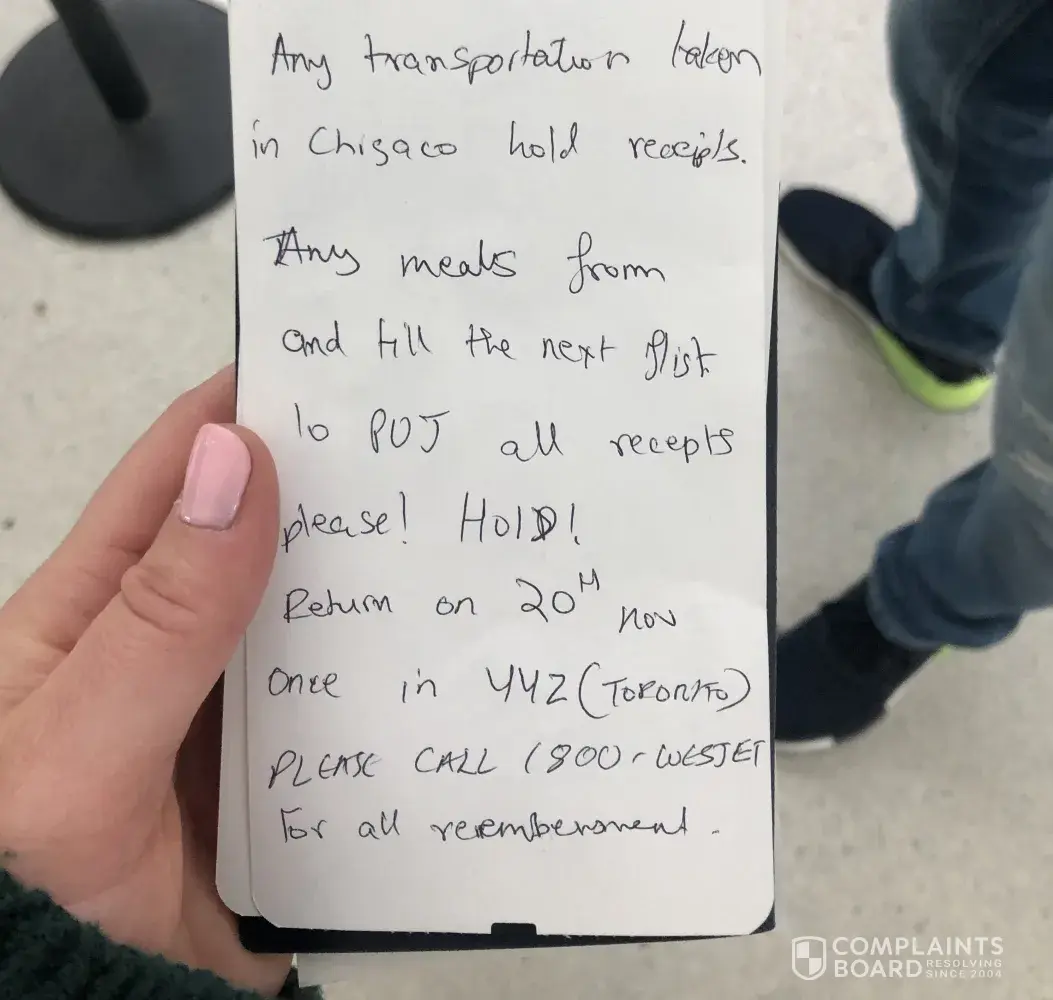 Any transportation taken
in Chigaco hold receipts.
Any meals from
and till the next flist
to PUJ all recepts
please! HOlD!
Return on 20th nov
Once in YYZ (TORONTO)
PLEASE CALL 1800-WESJET
For all rerembersment.
COMPLAINTS
BOARD RESOLVING
SINCE 2004